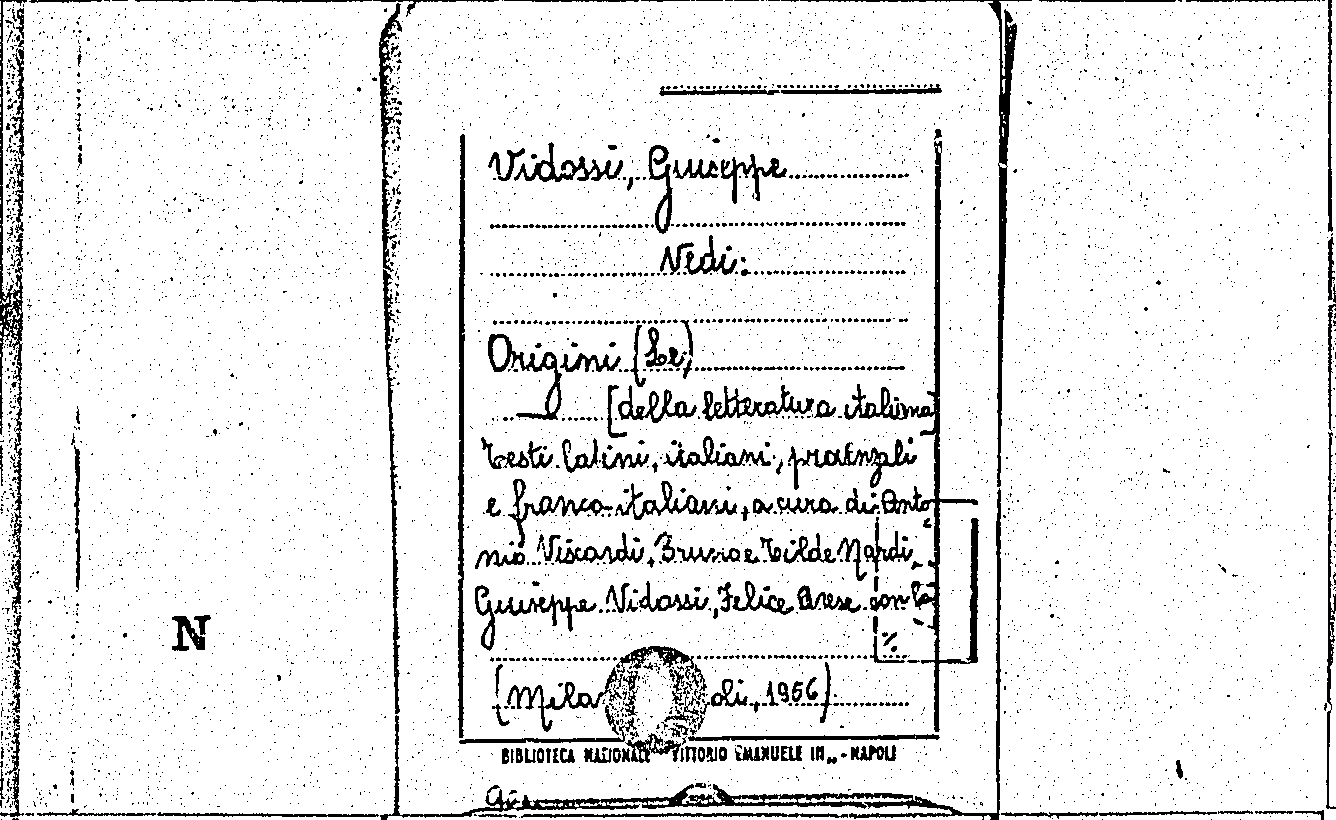 Vidossi, Giuseppe
Vedi:
Origini (Le)
[della letteratura italiana]
Testi latini, italiani, provenzali
e franco-italiani, a cura di Anto-
nio Viscardi, Bruno e Tilde Nardi,
Giuseppe Vidossi, Felice Arese con la
%
(Mila oli, 1956)
BIBLIOTECA NAZIONALE VITTORIO EMANUELE III„ - NAPOLI
N